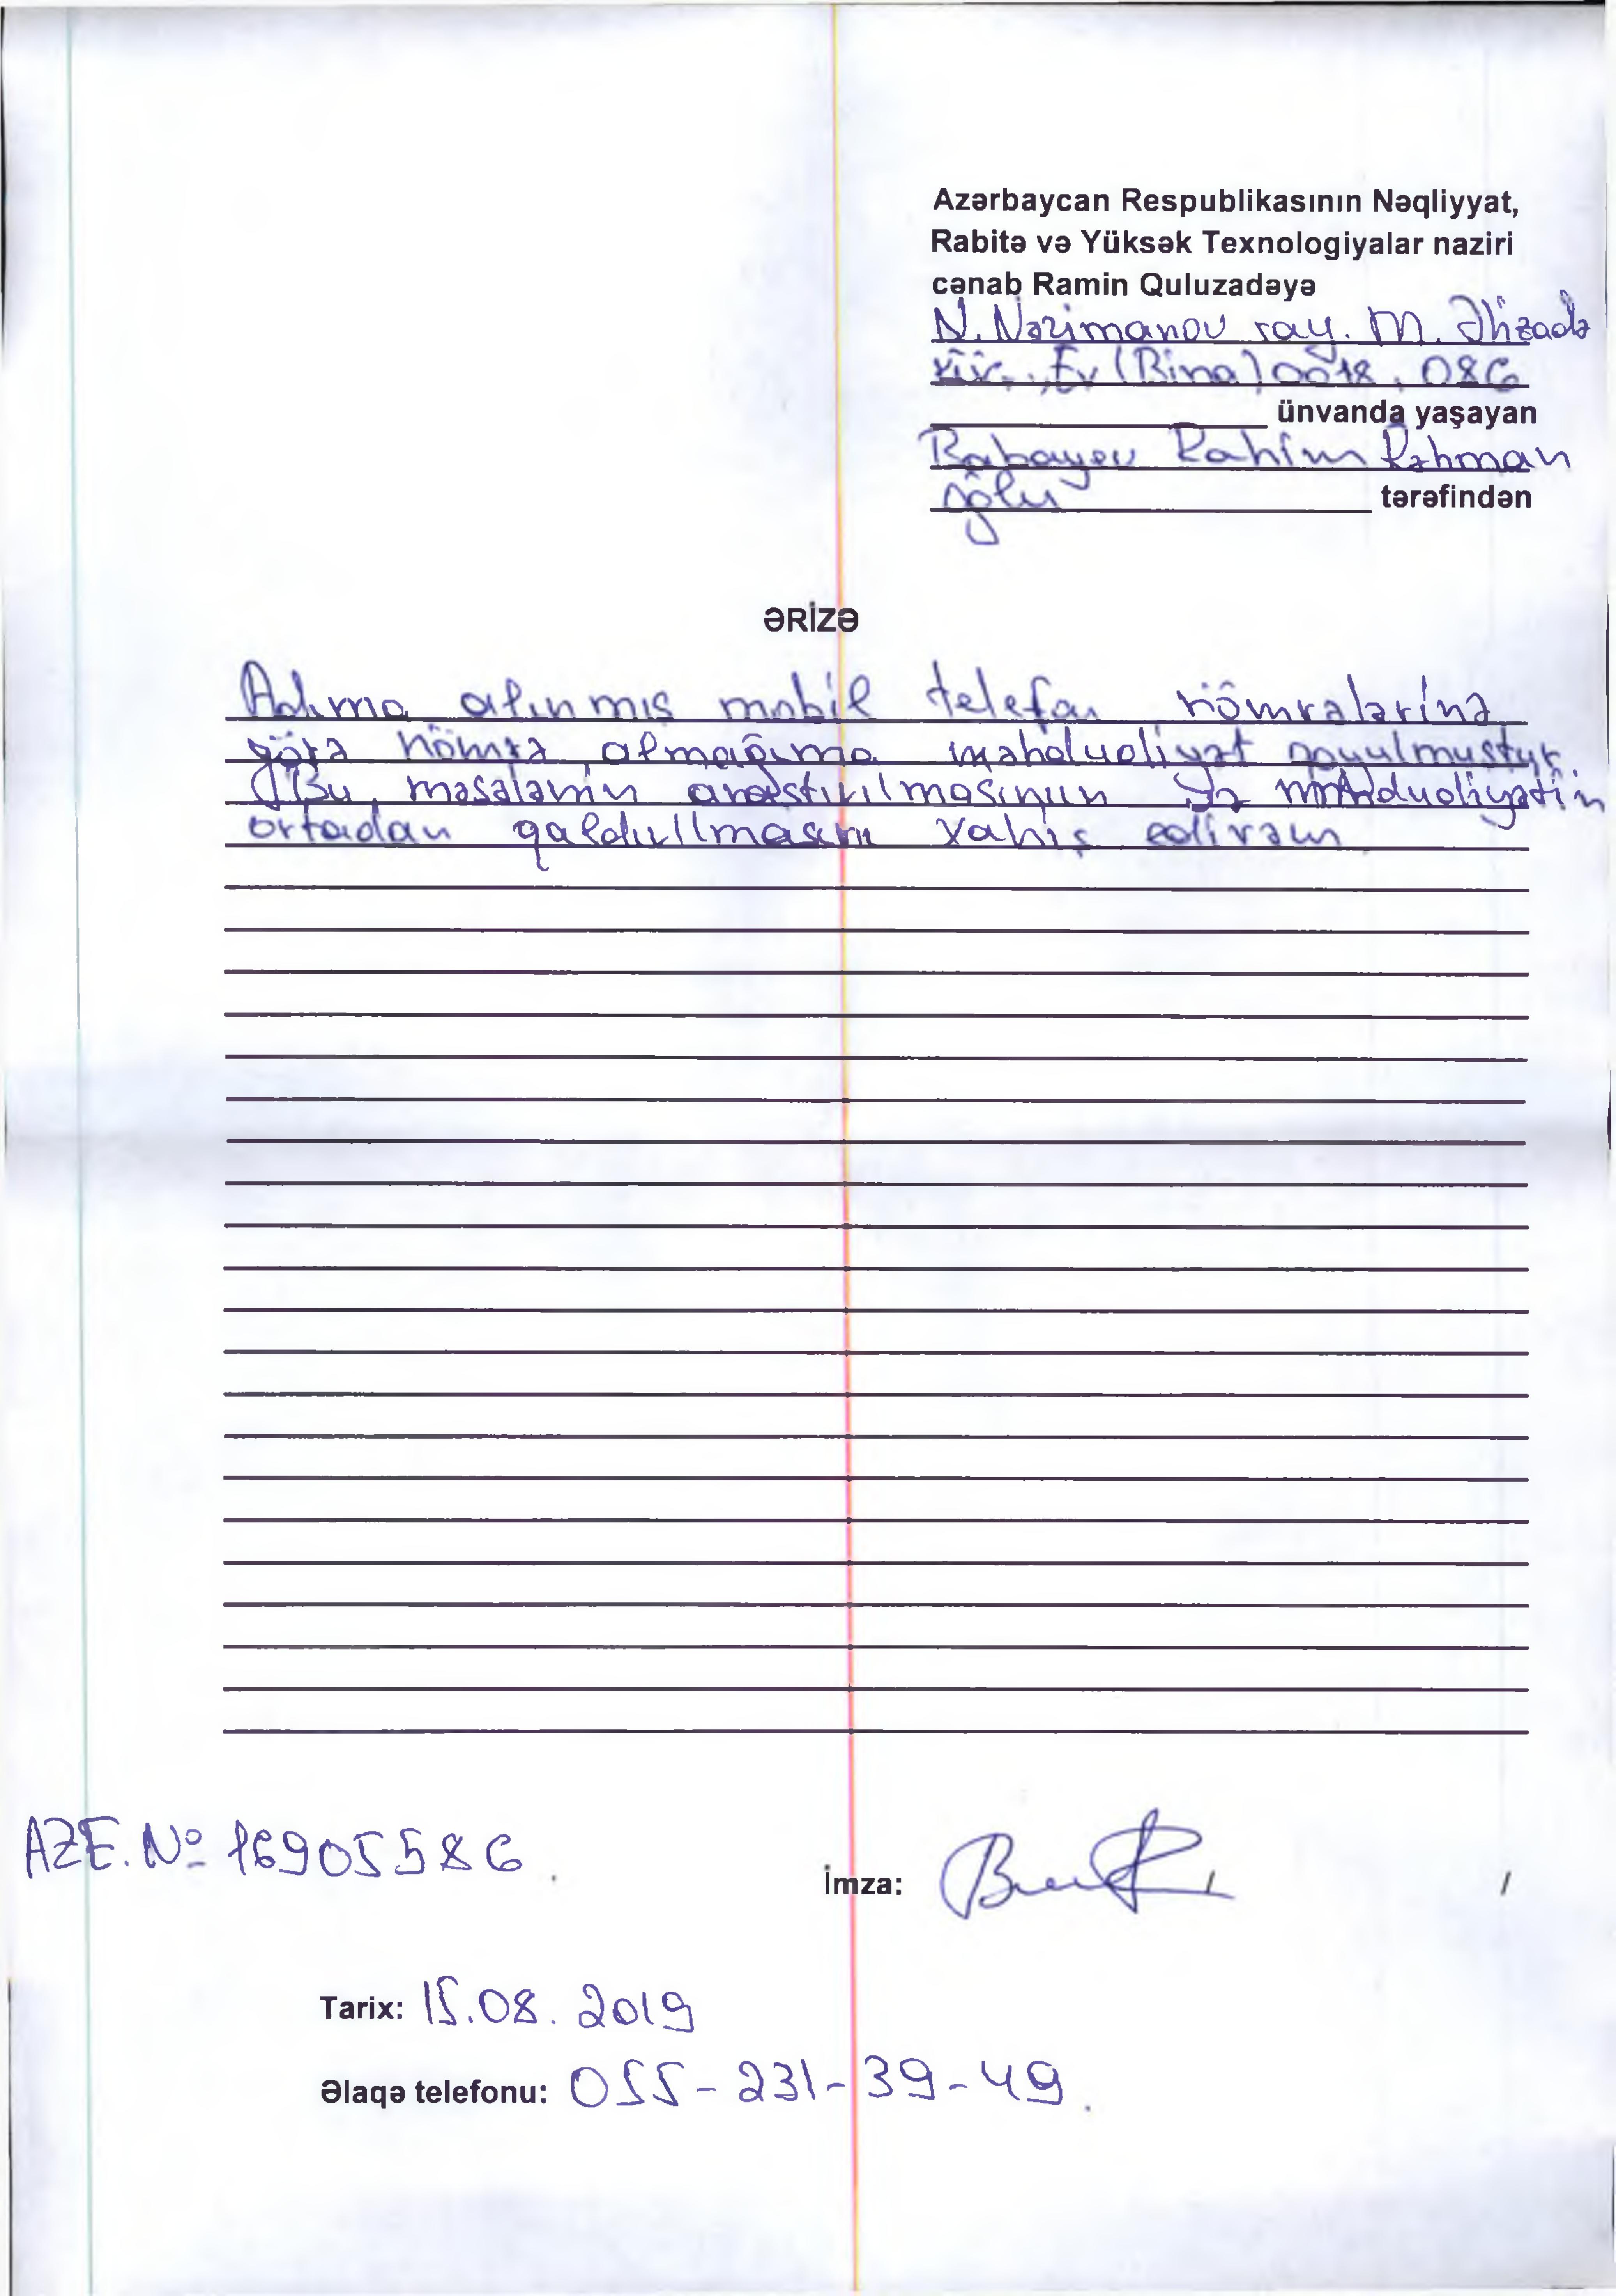 Azərbaycan Respublikasının Nəqliyyat,
Rabitə və Yüksək Texnologiyalar naziri
cənab Ramin Quluzadəyə
N. Nərimanov ray. M. Əlizadə
küç., Ev (Bina) 0018, 086
ünvanda yaşayan
Babayev Rahim Rəhman
oğlu tərəfindən
ƏRİZƏ
Adıma alınmış mobil telefon nömrələrinə
görə nömrə almağıma məhdudiyyət qoyulmuştur.
Bu məsələnin araştırılmasının və məhdudiyətin
ortadan qaldırllmasını xahiş edirəm
AZE. № 16905586
İmza:
Tarix: 15.08.2019
Əlaqə telefonu: 055-231-39-49